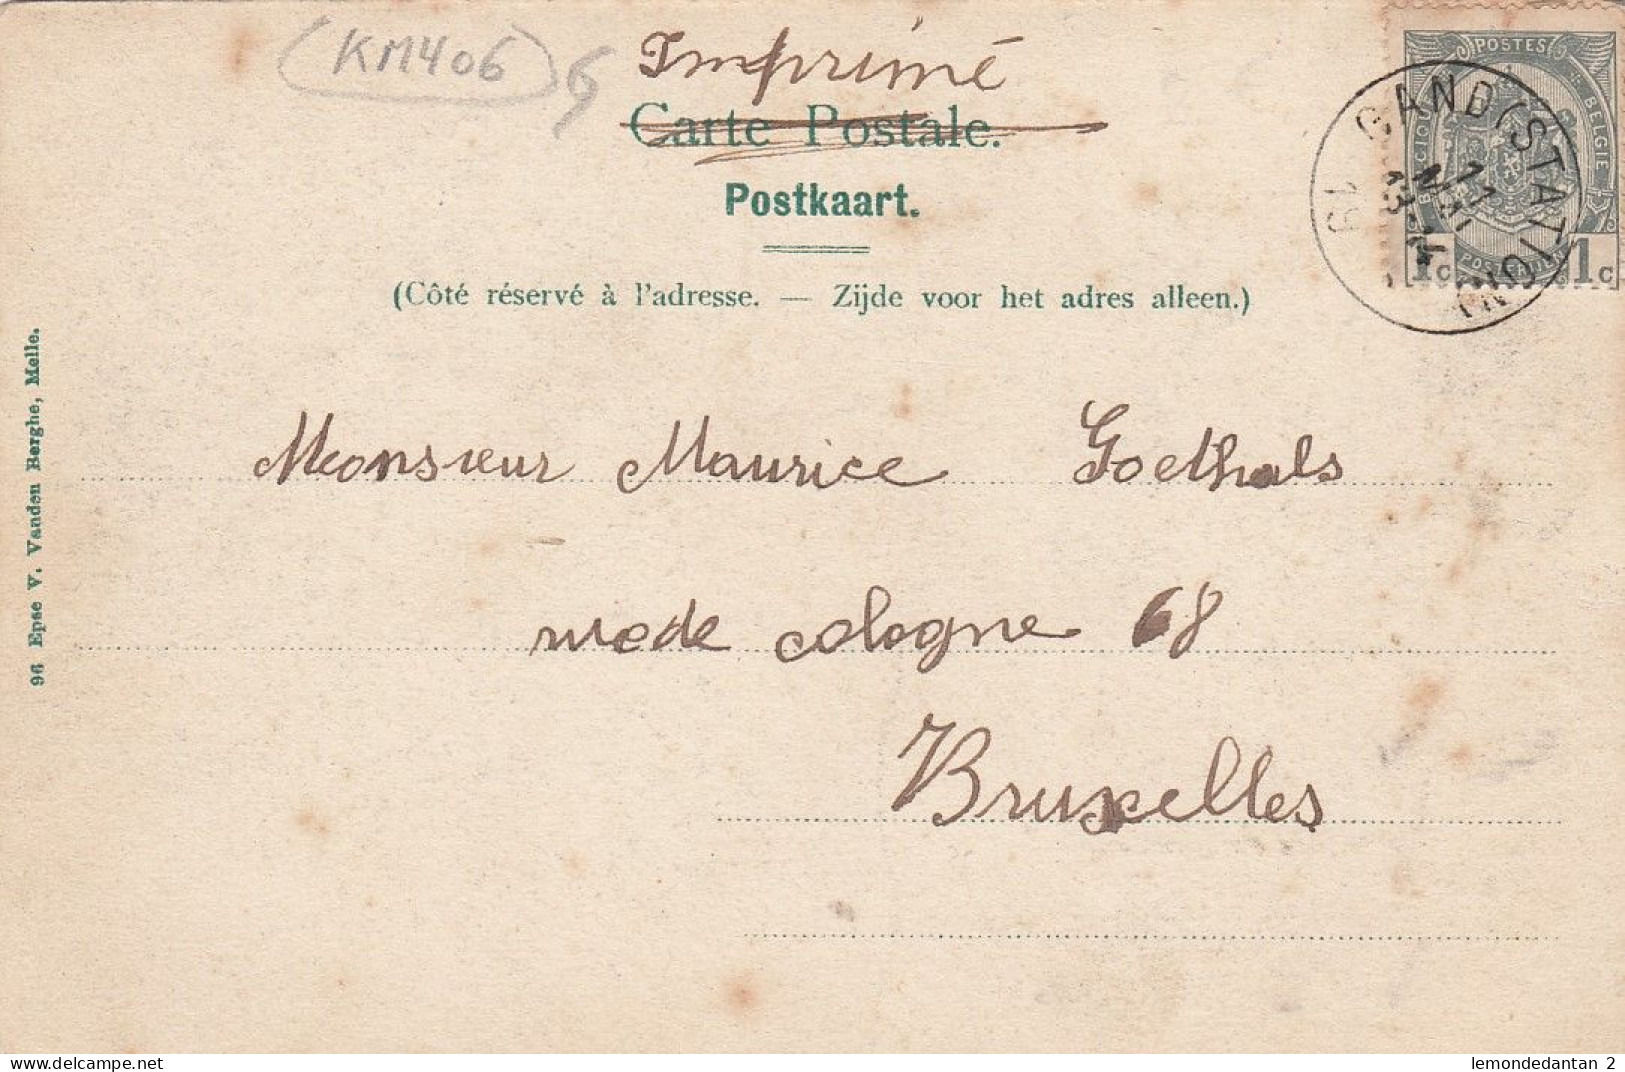 (KM406)
Imprimé
Carte Postale.
Postkaart.
(Côté réservé à l'adresse. — Zijde voor het adres alleen.)
POSTES
BELGIQUE BELGIE
POSTERIJEN
1c 1c
GAND (STATION)
11
MAI
13-14
19
Monsieur Maurice Goethals
rue de Cologne 68
Bruxelles
96 Epse V. Vanden Berghe, Melle.
delcampe.net
lemondedantan 2